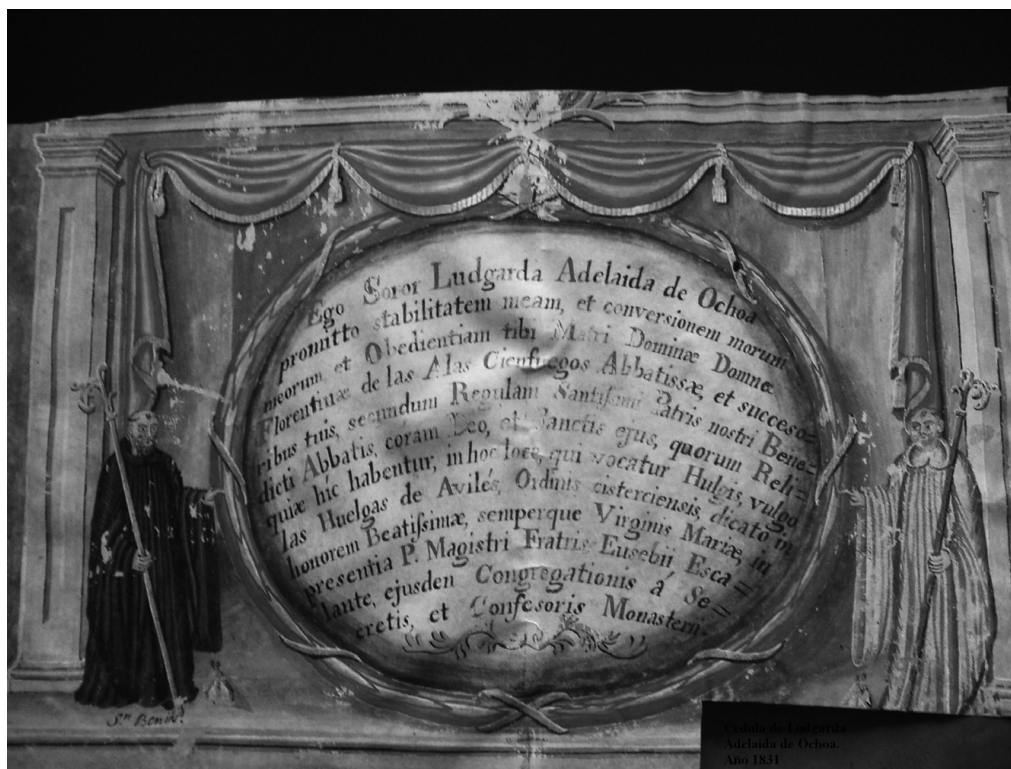 Ego Soror Ludgarda Adelaida de Ochoa
promitto stabilitatem meam, et conversionem morum
meorum et Obedientiam tibi Matri Dominæ Domnæ
Florentinæ de las Alas Cienfuegos Abbatissæ, et succeso=
ribus tuis, secundum Regulam Santissimi Patris nostri Bene=
dicti Abbatis, coram Deo, et Sanctis ejus, quorum Reli=
quiæ híc habentur, in hoc loco, qui vocatur Hulgis, vulgo
las Huelgas de Avilés, Ordinis cisterciensis, dicato in
honorem Beatissimæ, semperque Virginis Mariæ, in
presentia P. Magistri Fratris Eusebii Esca=
lante, ejusden Congregationis á Se=
cretis, et Confesoris Monasterii.
Sn. Benito.
Cédula de Ludgarda
Adelaida de Ochoa.
Año 1831